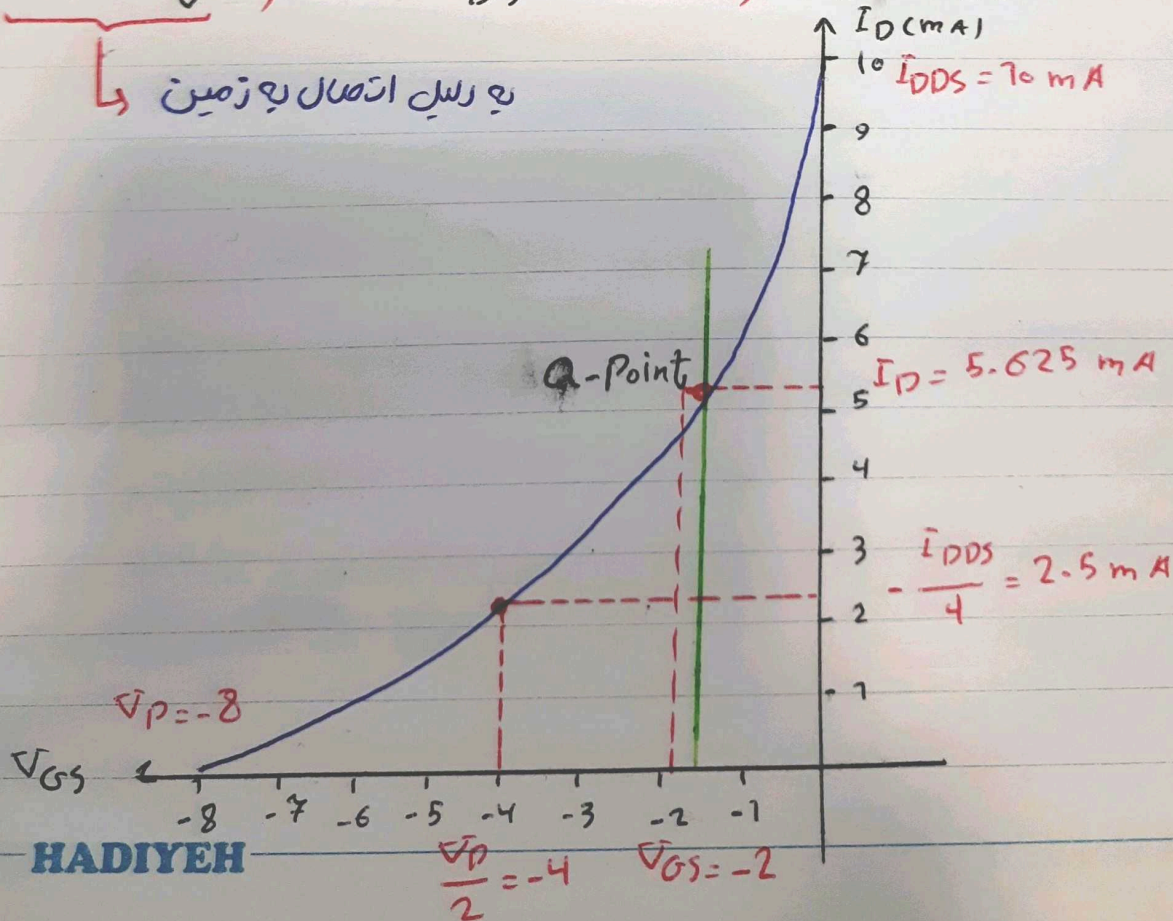 به دلیل اتصال به زمین
I_D (mA)
10 I_DDS = 10 mA
9
8
7
6
Q-Point I_D = 5.625 mA
5
4
3
I_DDS/4 = 2.5 mA
2
1
V_P = -8
V_GS
-8 -7 -6 -5 -4 -3 -2 -1
V_P/2 = -4 V_GS = -2
HADIYEH